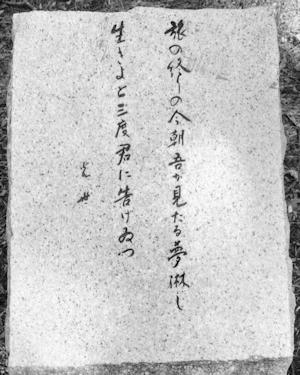 旅の終りの今朝吾が見たる夢淋し
生きよと三度君に告げゐつ